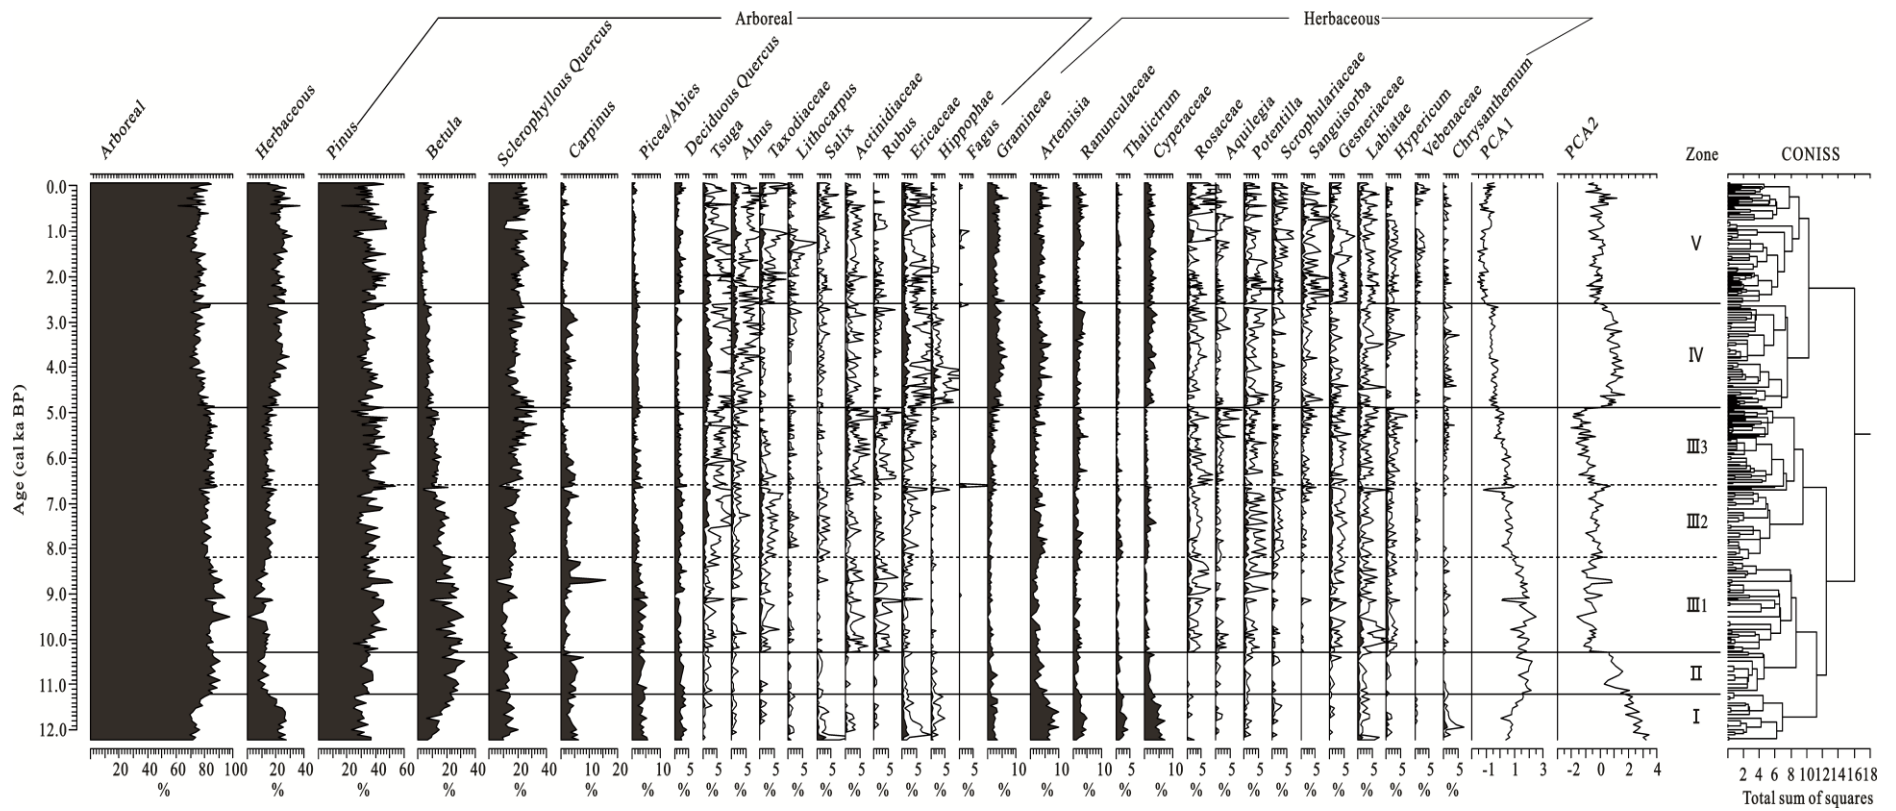 Arboreal Herbaceous
Arboreal Herbaceous Pinus Betula Sclerophyllous Quercus Carpinus Picea/Abies Deciduous Quercus Tsuga Alnus Taxodiaceae Lithocarpus Salix Actinidiaceae Rubus Ericaceae Hippophae Fagus Gramineae Artemisia Ranunculaceae Thalictrum Cyperaceae Rosaceae Aquilegia Potentilla Scrophulariaceae Sanguisorba Gesneriaceae Labiatae Hypericum Vebenaceae Chrysanthemum PCA1 PCA2 Zone CONISS
Age (cal ka BP)
0.0
1.0
V
2.0
3.0
IV
4.0
5.0
Ⅲ3
6.0
7.0
Ⅲ2
8.0
9.0
Ⅲ1
10.0
11.0
II
12.0
I
20 40 60 80 100 20 40 20 40 60 20 40 20 40 10 20 10 5 5 5 5 5 5 5 5 5 5 5 10 10 10 5 10 5 5 5 5 5 5 5 5 5 5 -1 1 3 -2 0 2 4 2 4 6 8 1012141618
% % % % % % % % % % % % % % % % % % % % % % % % % % % % % % % % % Total sum of squares